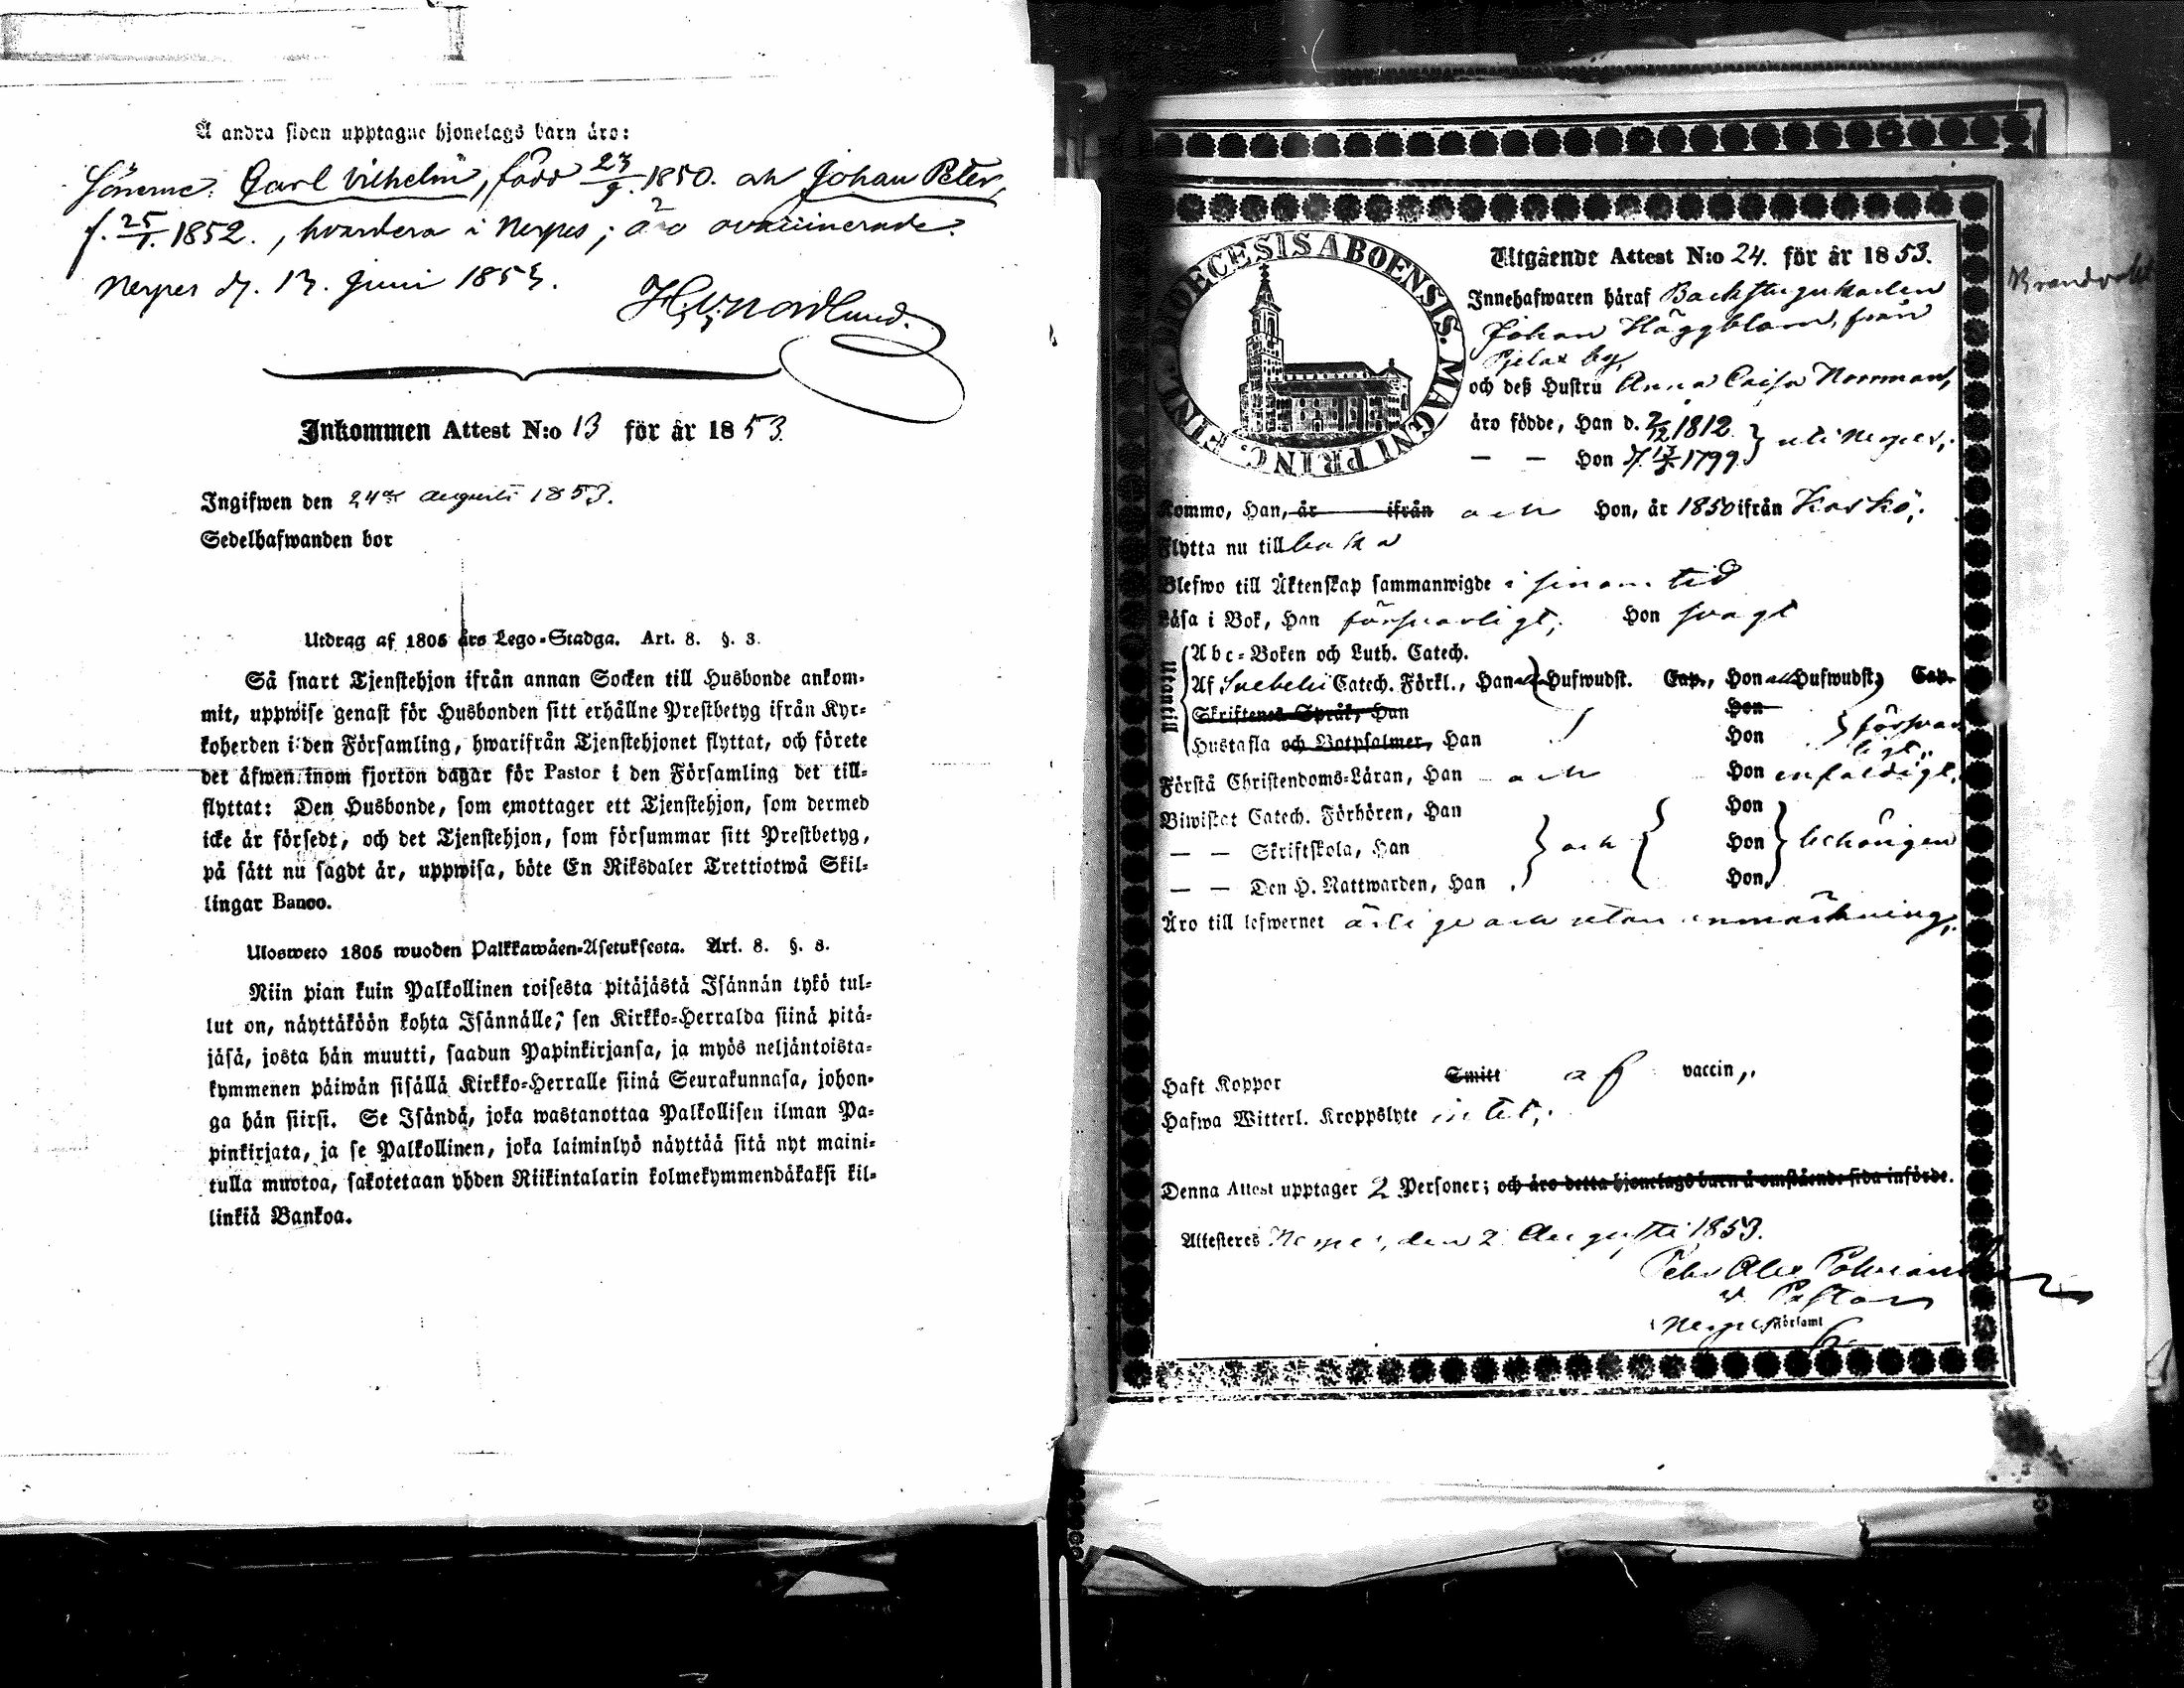 Å andra sidan upptagne hjonelags barn äro:
Sönerne: Carl Vilhelm, född 23/9. 1850. och Johan Peter,
f. 25/1. 1852., hvardera i Nerpes; äro ovaccinerade.
Nerpes d. 13. Juni 1853.
H. V. Nordlund.
Inkommen Attest N:o 13 för år 1853.
Ingifwen den 24de Augusti 1853.
Sedelhafwanden bor
Utdrag af 1805 års Lego-Stadga. Art. 8. §. 3.
Så snart Tjenstehjon ifrån annan Socken till Husbonde ankom-
mit, uppwise genast för Husbonden sitt erhållne Prestbetyg ifrån Kyr-
koherden i den Församling, hwarifrån Tjenstehjonet flyttat, och förete
det äfwen inom fjorton dagar för Pastor i den Församling det till-
flyttat: Den Husbonde, som emottager ett Tjenstehjon, som dermed
icke är försedt, och det Tjenstehjon, som försummar sitt Prestbetyg,
på sätt nu sagdt är, uppwisa, böte En Riksdaler Trettiotwå Skil-
lingar Banco.
Ulosweto 1805 wuoden Palkkawäen-Asetuksesta. Art. 8. §. 3.
Niin pian kuin Palkollinen toisesta pitäjästä Isännän tykö tul-
lut on, näyttäköön kohta Isännälle, sen Kirkko-Herralda siinä pitä-
jäsä, josta hän muutti, saadun Papinkirjansa, ja myös neljäntoista-
kymmenen päiwän sisällä Kirkko-Herralle siinä Seurakunnasa, johon-
ga hän siirsi. Se Isändä, joka wastanottaa Palkollisen ilman Pa-
pinkirjata, ja se Palkollinen, joka laiminlyö näyttää sitä nyt maini-
tulla muotoa, sakotetaan yhden Riikintalarin kolmekymmendäkaksi kil-
linkiä Bankoa.
DIOECESIS ABOENSIS. MAGNI PRINC. FINL.
Utgående Attest N:o 24. för år 1853.
Innehafwaren häraf Backstugukarlen
Johan Häggblom, från
Pjelax by,
och deß Hustru Anna Caisa Norrman,
äro födde, Han d. 2/12 1812. } uti Nerpes,
— — Hon d. 13/3 1799
Komme, Han, är ifrån och Hon, år 1850 ifrån Kaskö,
Flytta nu tillbaka
Blefwo till Äktenskap sammanwigde i sinom tid
Läsa i Bok, Han försvarligt, Hon svagt
Utantill
Abc-Boken och Luth. Catech.
Af Svebelii Catech. Förkl., Han Hufwudst. Cap., Hon Hufwudst, Cap.
Skriftenes Språk, Han Hon
Hustafla och Botpsalmer, Han Hon försvar
ligt,
Förstå Christendoms-Läran, Han och Hon enfaldigt,
Biwistat Catech. Förhören, Han Hon
— — Skriftskola, Han och Hon behörigen
— — Den H. Nattwarden, Han Hon
Äro till lefwernet ärlige och utan anmärkning,
Haft Koppor Smitt af vaccin,
Hafwa Witterl. Kroppslyte intet,
Denna Attest upptager 2 Personer; och äro detta hjonelags barn å omstående sida införde.
Attesteres Nerpes, den 2 Augusti 1853.
v. Pastor
i Nerpes Församl